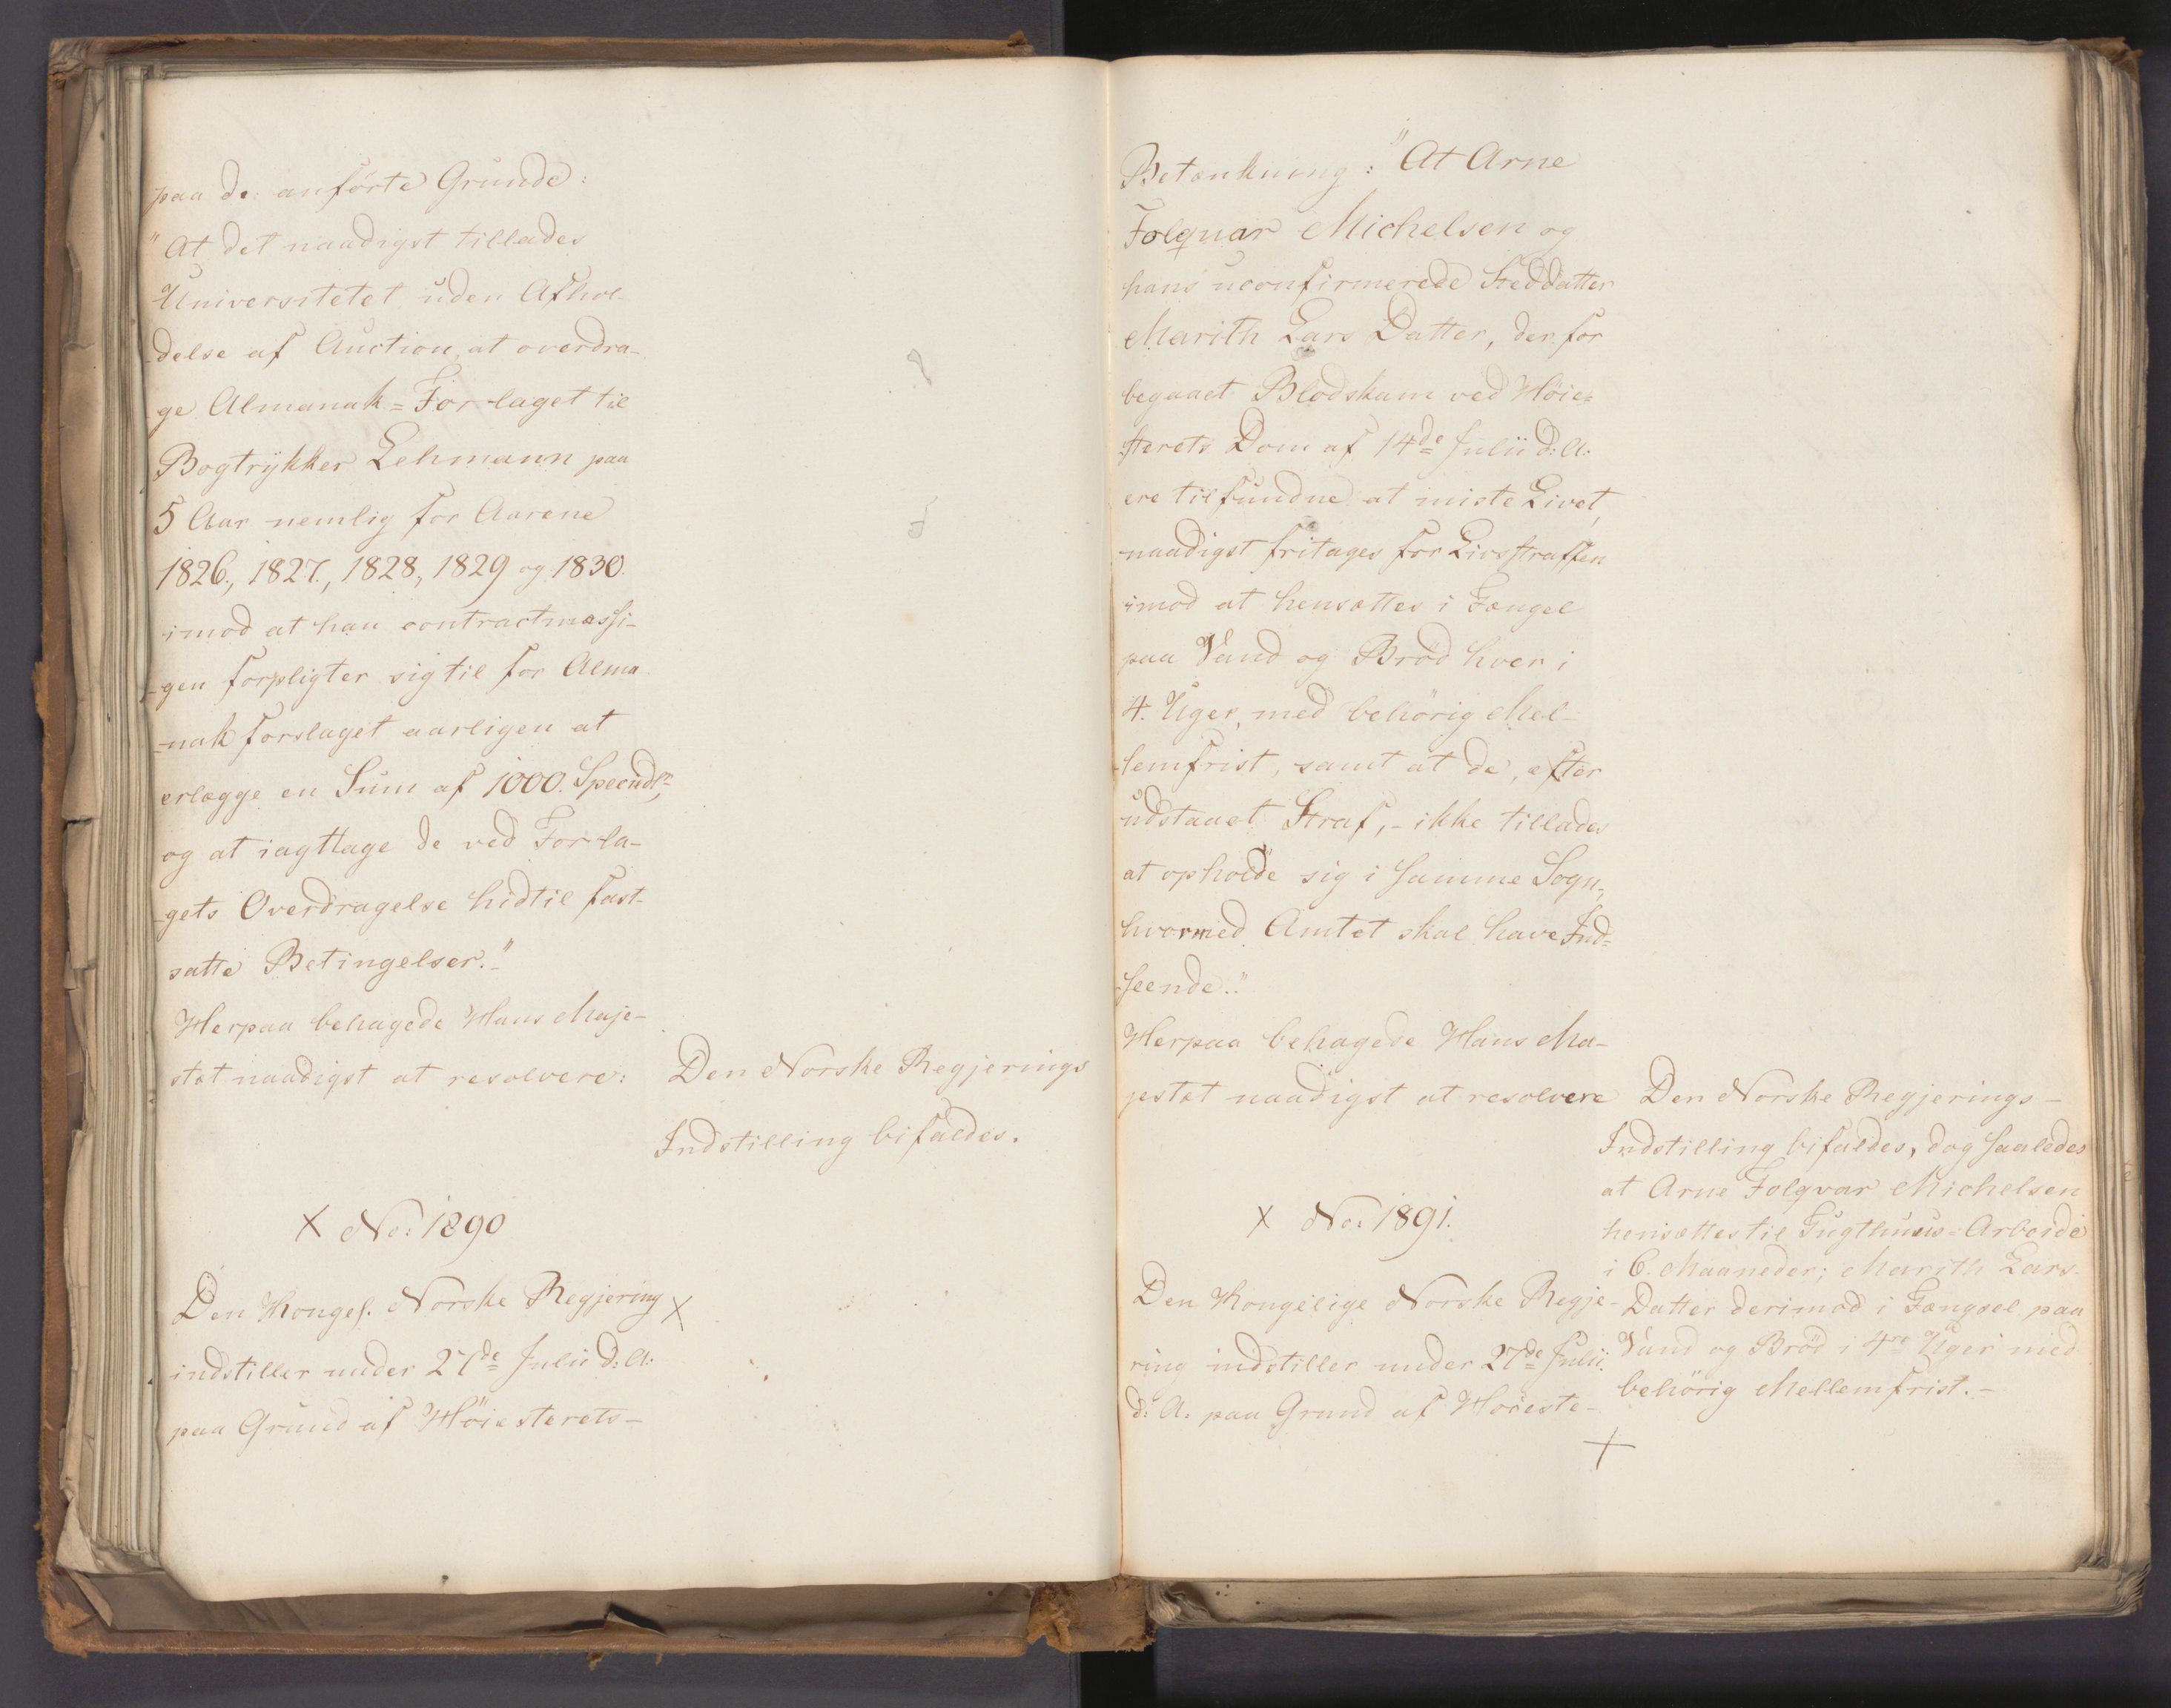 paa de anførte Grunde:
"At det naadigst tillades
Universitetet uden Afhol-
-delse af Auction, at overdra-
-ge Almanak=Forlaget til
Bogtrykker Lehmann paa
5 Aar nemlig for Aarene
1826., 1827., 1828., 1829 og 1830.
imod at han contractmæssi-
-gen forpligter sig til for Alma
-nakforslaget aarligen at
erlægge en Sum af 1000. Specidlr,
og at iagttage de ved Forla-
-gets Overdragelse hidtil fast-
satte Betingelser."
Herpaa behagede Hans Maje-
stæt naadigst at resolvere:
Den Norske Regjerings
Indstilling bifaldes.
X No: 1890
Den Kongel. Norske Regjering X
indstiller under 27de Julii d:A:
paa Grund af Höiesterets-
Betænkning: "At Arne
Folqvar Michelsen og
hans uconfirmerede Steddatter
Marith Lars Datter, der for
begaaet Blodskam ved Höie=
sterets Dom af 14de Julii d:A:
ere tilfundne at miste Livet,
naadigst fritages for Livsstraffen
imod at hensættes i Fængel
paa Vand og Bröd hver i
4. Uger, med behörig Mel-
-lemfrist, samt at de, efter
udstaaet Straf, - ikke tillades
at opholde sig i samme Sogn,
hvormed Amtet skal have Ind=
-seende."
Herpaa behagede Hans Ma-
jestæt naadigst at resolvere
Den Norske Regjerings-
Indstilling bifaldes, dog saaledes
at Arne Folqvar Michelsen
hensættes til Tugthuus-Arbeide
i 6. Maaneder; Marith Lars-
Datter derimod i Fængsel paa
Vand og Bröd i 4re Uger med
behörig Mellemfrist.-
X
X No: 1891.
Den Kongelige Norske Regje-
ring indstiller under 27de Julii
d:A. paa Grund af Höieste-